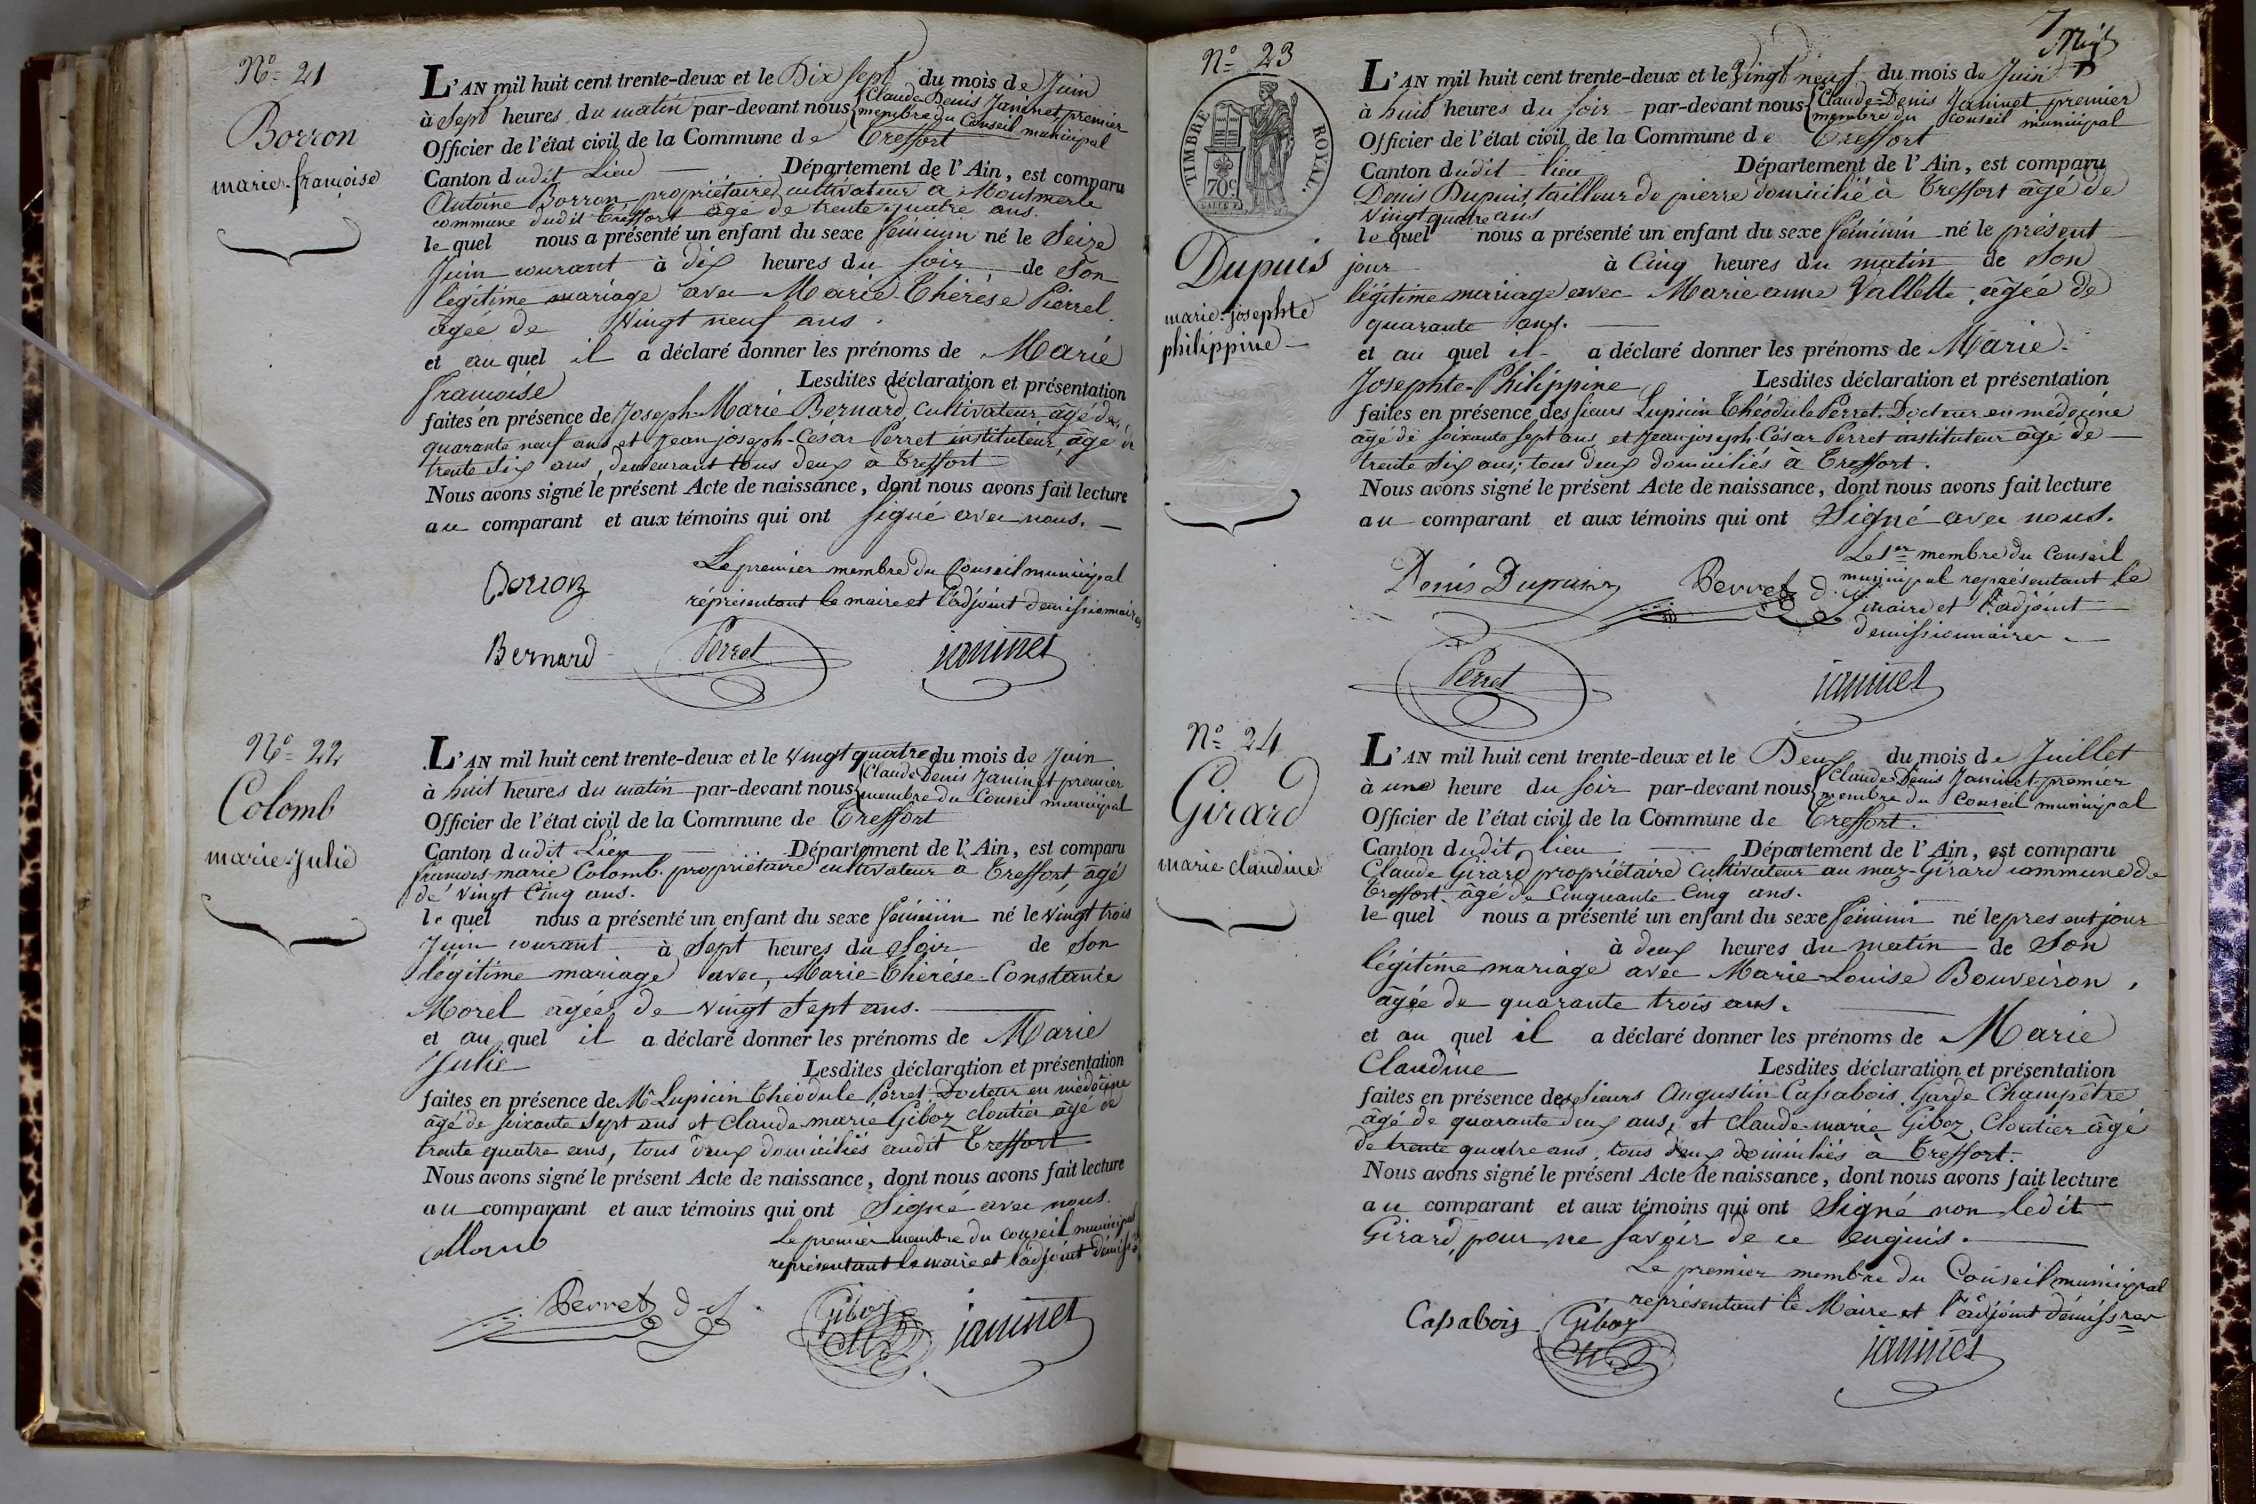 N° 21
Borron
marie-françoise
L'AN mil huit cent trente-deux et le Dix sept du mois de Juin
à sept heures du matin par-devant nous Claude Denis Janinet premier
membre du Conseil municipal
Officier de l'état civil de la Commune de Treffort
Canton dudit Lieu Département de l'Ain, est comparu
Antoine Borron, propriétaire cultivateur à Montmerle
commune dudit Treffort âgé de trente quatre ans.
lequel nous a présenté un enfant du sexe féminin né le Seize
Juin courant à dix heures du soir, de son
légitime mariage avec Marie-Thérèse Pierrel
âgée de Vingt neuf ans.
et auquel il a déclaré donner les prénoms de Marie
françoise Lesdites déclaration et présentation
faites en présence de Joseph-Marie Bernard, cultivateur âgé de
quarante neuf ans et Jean joseph-César Perret instituteur, âgé de
trente six ans, demeurant tous deux à Treffort
Nous avons signé le présent Acte de naissance, dont nous avons fait lecture
au comparant et aux témoins qui ont signé avec nous.
Le premier membre du Conseil municipal
réprésentant le maire et l'adjoint démissionnaires
Borron
Bernard Perret janinet
N° 22
Colomb
marie-Julie
L'AN mil huit cent trente-deux et le vingt quatre du mois de Juin
à huit heures du matin par-devant nous Claude Denis Janinet premier
membre du Conseil municipal
Officier de l'état civil de la Commune de Treffort
Canton dudit Lieu Département de l'Ain, est comparu
françois-marie Colomb propriétaire cultivateur à Treffort, âgé
de vingt Cinq ans.
lequel nous a présenté un enfant du sexe féminin né le vingt trois
Juin courant à Sept heures du Soir de Son
légitime mariage avec, Marie-Thérèse-Constance
Morel âgée de vingt Sept ans.
et auquel il a déclaré donner les prénoms de Marie
Julie Lesdites déclaration et présentation
faites en présence de Mr Lupicin Théodule Perret Docteur en médecine
âgé de soixante sept ans et Claude-marie Giboz cloutier âgé de
trente quatre ans, tous deux domiciliés audit Treffort
Nous avons signé le présent Acte de naissance, dont nous avons fait lecture
au comparant et aux témoins qui ont Signé avec nous.
Le premier membre du conseil municipal
représentant le maire et l'adjoint
Perret Giboz janinet
7
N° 23
TIMBRE ROYAL.
70c
Dupuis
marie-josephte
philippine
L'AN mil huit cent trente-deux et le Vingt neuf du mois de Juin
à huit heures du soir par-devant nous Claude-Denis Janinet premier
membre du Conseil municipal
Officier de l'état civil de la Commune de Treffort
Canton dudit lieu Département de l'Ain, est comparu
Denis Dupuis, tailleur de pierre domicilié à Treffort âgé de
vingt quatre ans
lequel nous a présenté un enfant du sexe féminin né le présent
jour à Cinq heures du matin de Son
légitime mariage avec Marie-anne Vallette, âgée de
quarante ans.
et auquel il a déclaré donner les prénoms de Marie-
Josephte-Philippine Lesdites déclaration et présentation
faites en présence des sieurs Lupicin Théodule Perret. Docteur en médecine
âgé de soixante sept ans, et Jean joseph-César Perret instituteur âgé de
trente six ans; tous deux domiciliés à Treffort.
Nous avons signé le présent Acte de naissance, dont nous avons fait lecture
au comparant et aux témoins qui ont Signé avec nous.
Le 1er membre du Conseil
municipal représentant le
maire et l'adjoint
démissionnaires
Denis Dupuis Perret
Perret janinet
N° 24
Girard
marie claudine
L'AN mil huit cent trente-deux et le Deux du mois de Juillet
à une heure du soir par-devant nous Claude-Denis Janinet premier
membre du Conseil municipal
Officier de l'état civil de la Commune de Treffort.
Canton dudit lieu Département de l'Ain, est comparu
Claude Girard propriétaire Cultivateur au maz-Girard commune de
Treffort âgé de Cinquante Cinq ans.
lequel nous a présenté un enfant du sexe féminin né le present jour
à deux heures du matin de Son
légitime mariage avec Marie-Louise Bouveiron,
âgée de quarante trois ans.
et auquel il a déclaré donner les prénoms de Marie
Claudine Lesdites déclaration et présentation
faites en présence des sieurs Augustin Cassabois Garde Champêtre
âgé de quarante deux ans, et Claude-marie Giboz, Cloutier âgé
de trente quatre ans, tous deux domiciliés à Treffort.
Nous avons signé le présent Acte de naissance, dont nous avons fait lecture
au comparant et aux témoins qui ont Signé non ledit
Girard, pour ne savoir de ce enquis.
Le premier membre du Conseil municipal
représentant le Maire et l'adjoint démissres
Cassabois Giboz janinet